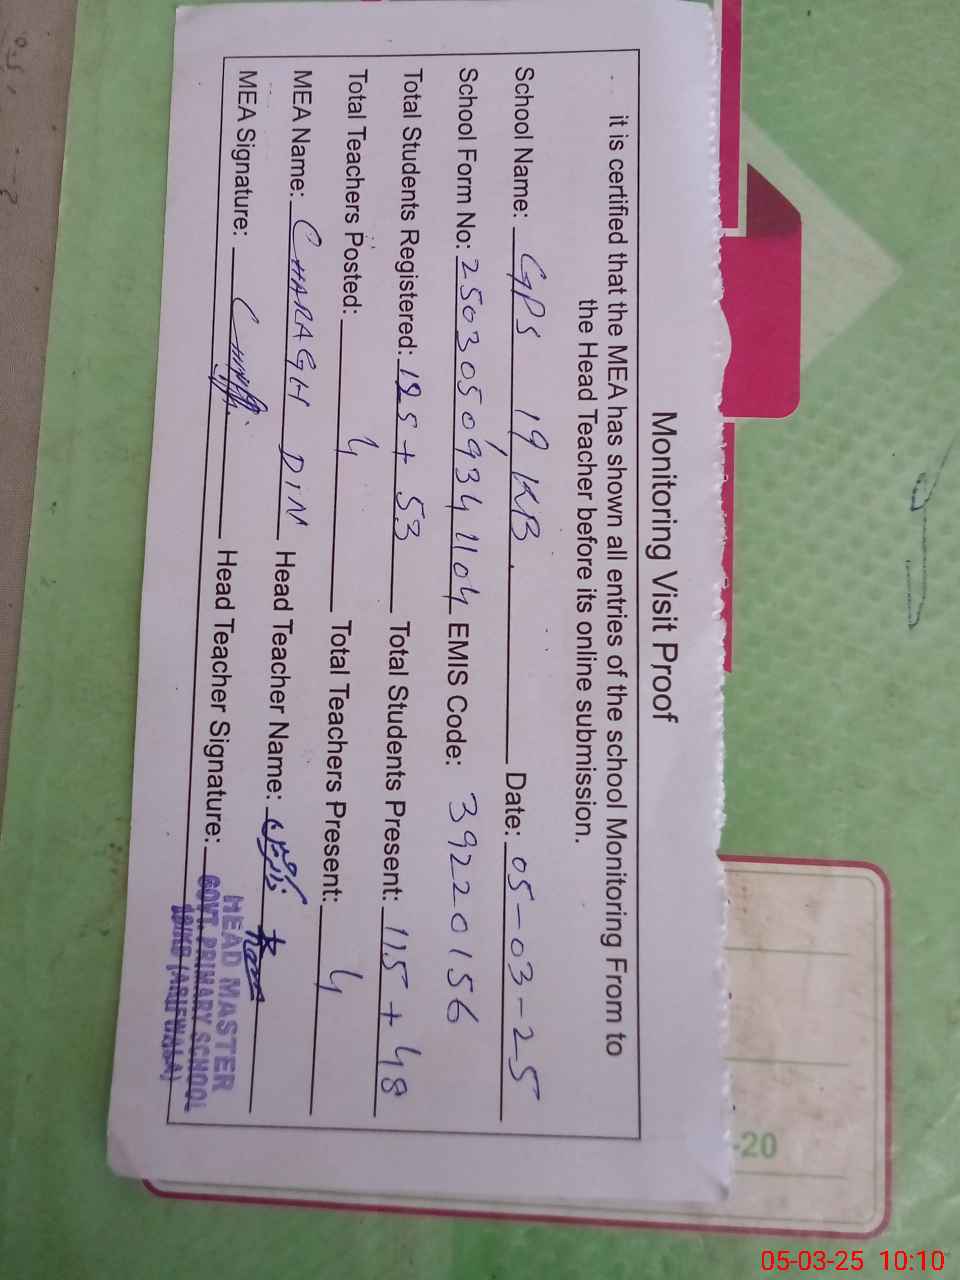 Monitoring Visit Proof
it is certified that the MEA has shown all entries of the school Monitoring From to
the Head Teacher before its online submission.
School Name: GPS 19 KB. Date: 05-03-25
School Form No: 2503050934 1104 EMIS Code: 39220156
Total Students Registered: 125 + 53 Total Students Present: 115 + 48
Total Teachers Posted: 4 Total Teachers Present: 4
MEA Name: CHARAGH DIN Head Teacher Name:
MEA Signature: Head Teacher Signature:
HEAD MASTER
GOVT. PRIMARY SCHOOL
19/KB (ARIFWALA)
-20
05-03-25 10:10